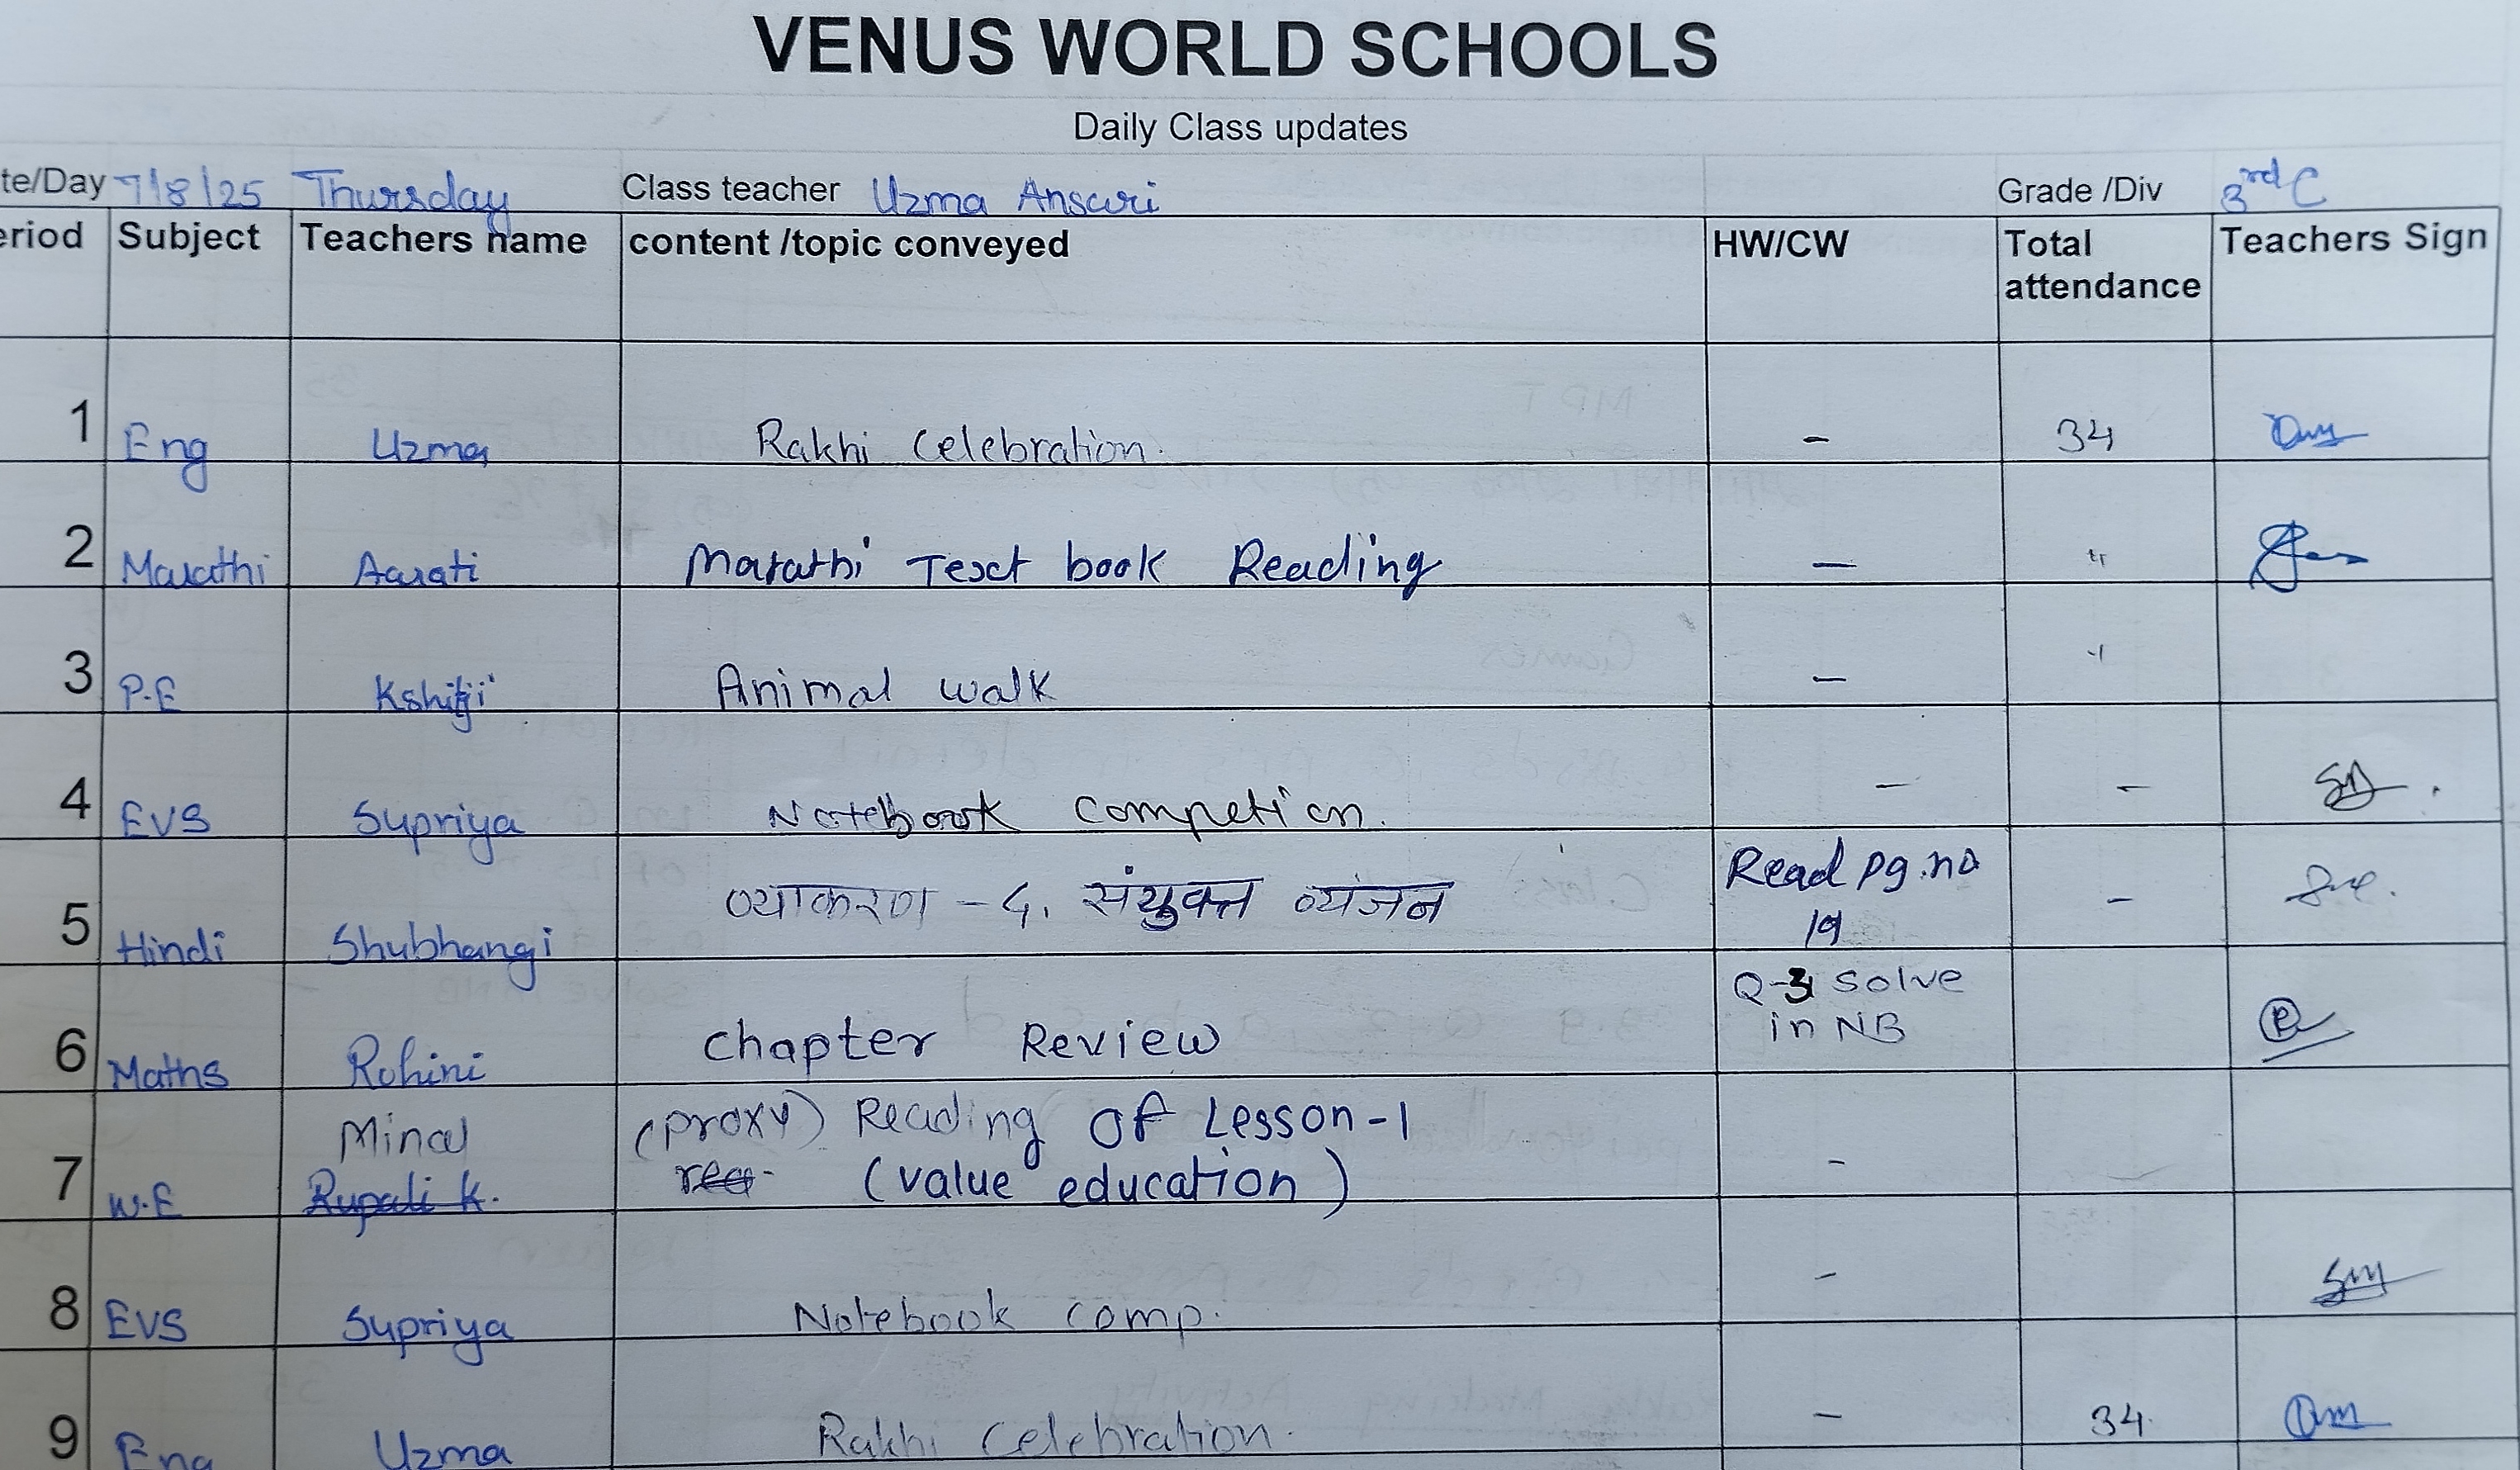 VENUS WORLD SCHOOLS
Daily Class updates
te/Day 7/8/25 Thursday Class teacher Uzma Ansari Grade /Div 3rd C
eriod Subject Teachers name content /topic conveyed HW/CW Total attendance Teachers Sign
1 Eng Uzma Rakhi Celebration. - 34
2 Marathi Aarati Marathi Text book Reading - "
3 P.E Animal walk - "
4 EVS Supriya Notebook Competion. - -
5 Hindi Shubhangi व्याकरण - 4. संयुक्त व्यंजन Read pg.no 19 -
6 Maths Rohini Chapter Review Q-3 Solve in NB
7 W.E Minal (proxy) Reading of Lesson-1 -
Rupali K. rea- (value education)
8 EVS Supriya Notebook comp. -
9 Eng Uzma Rakhi Celebration. - 34